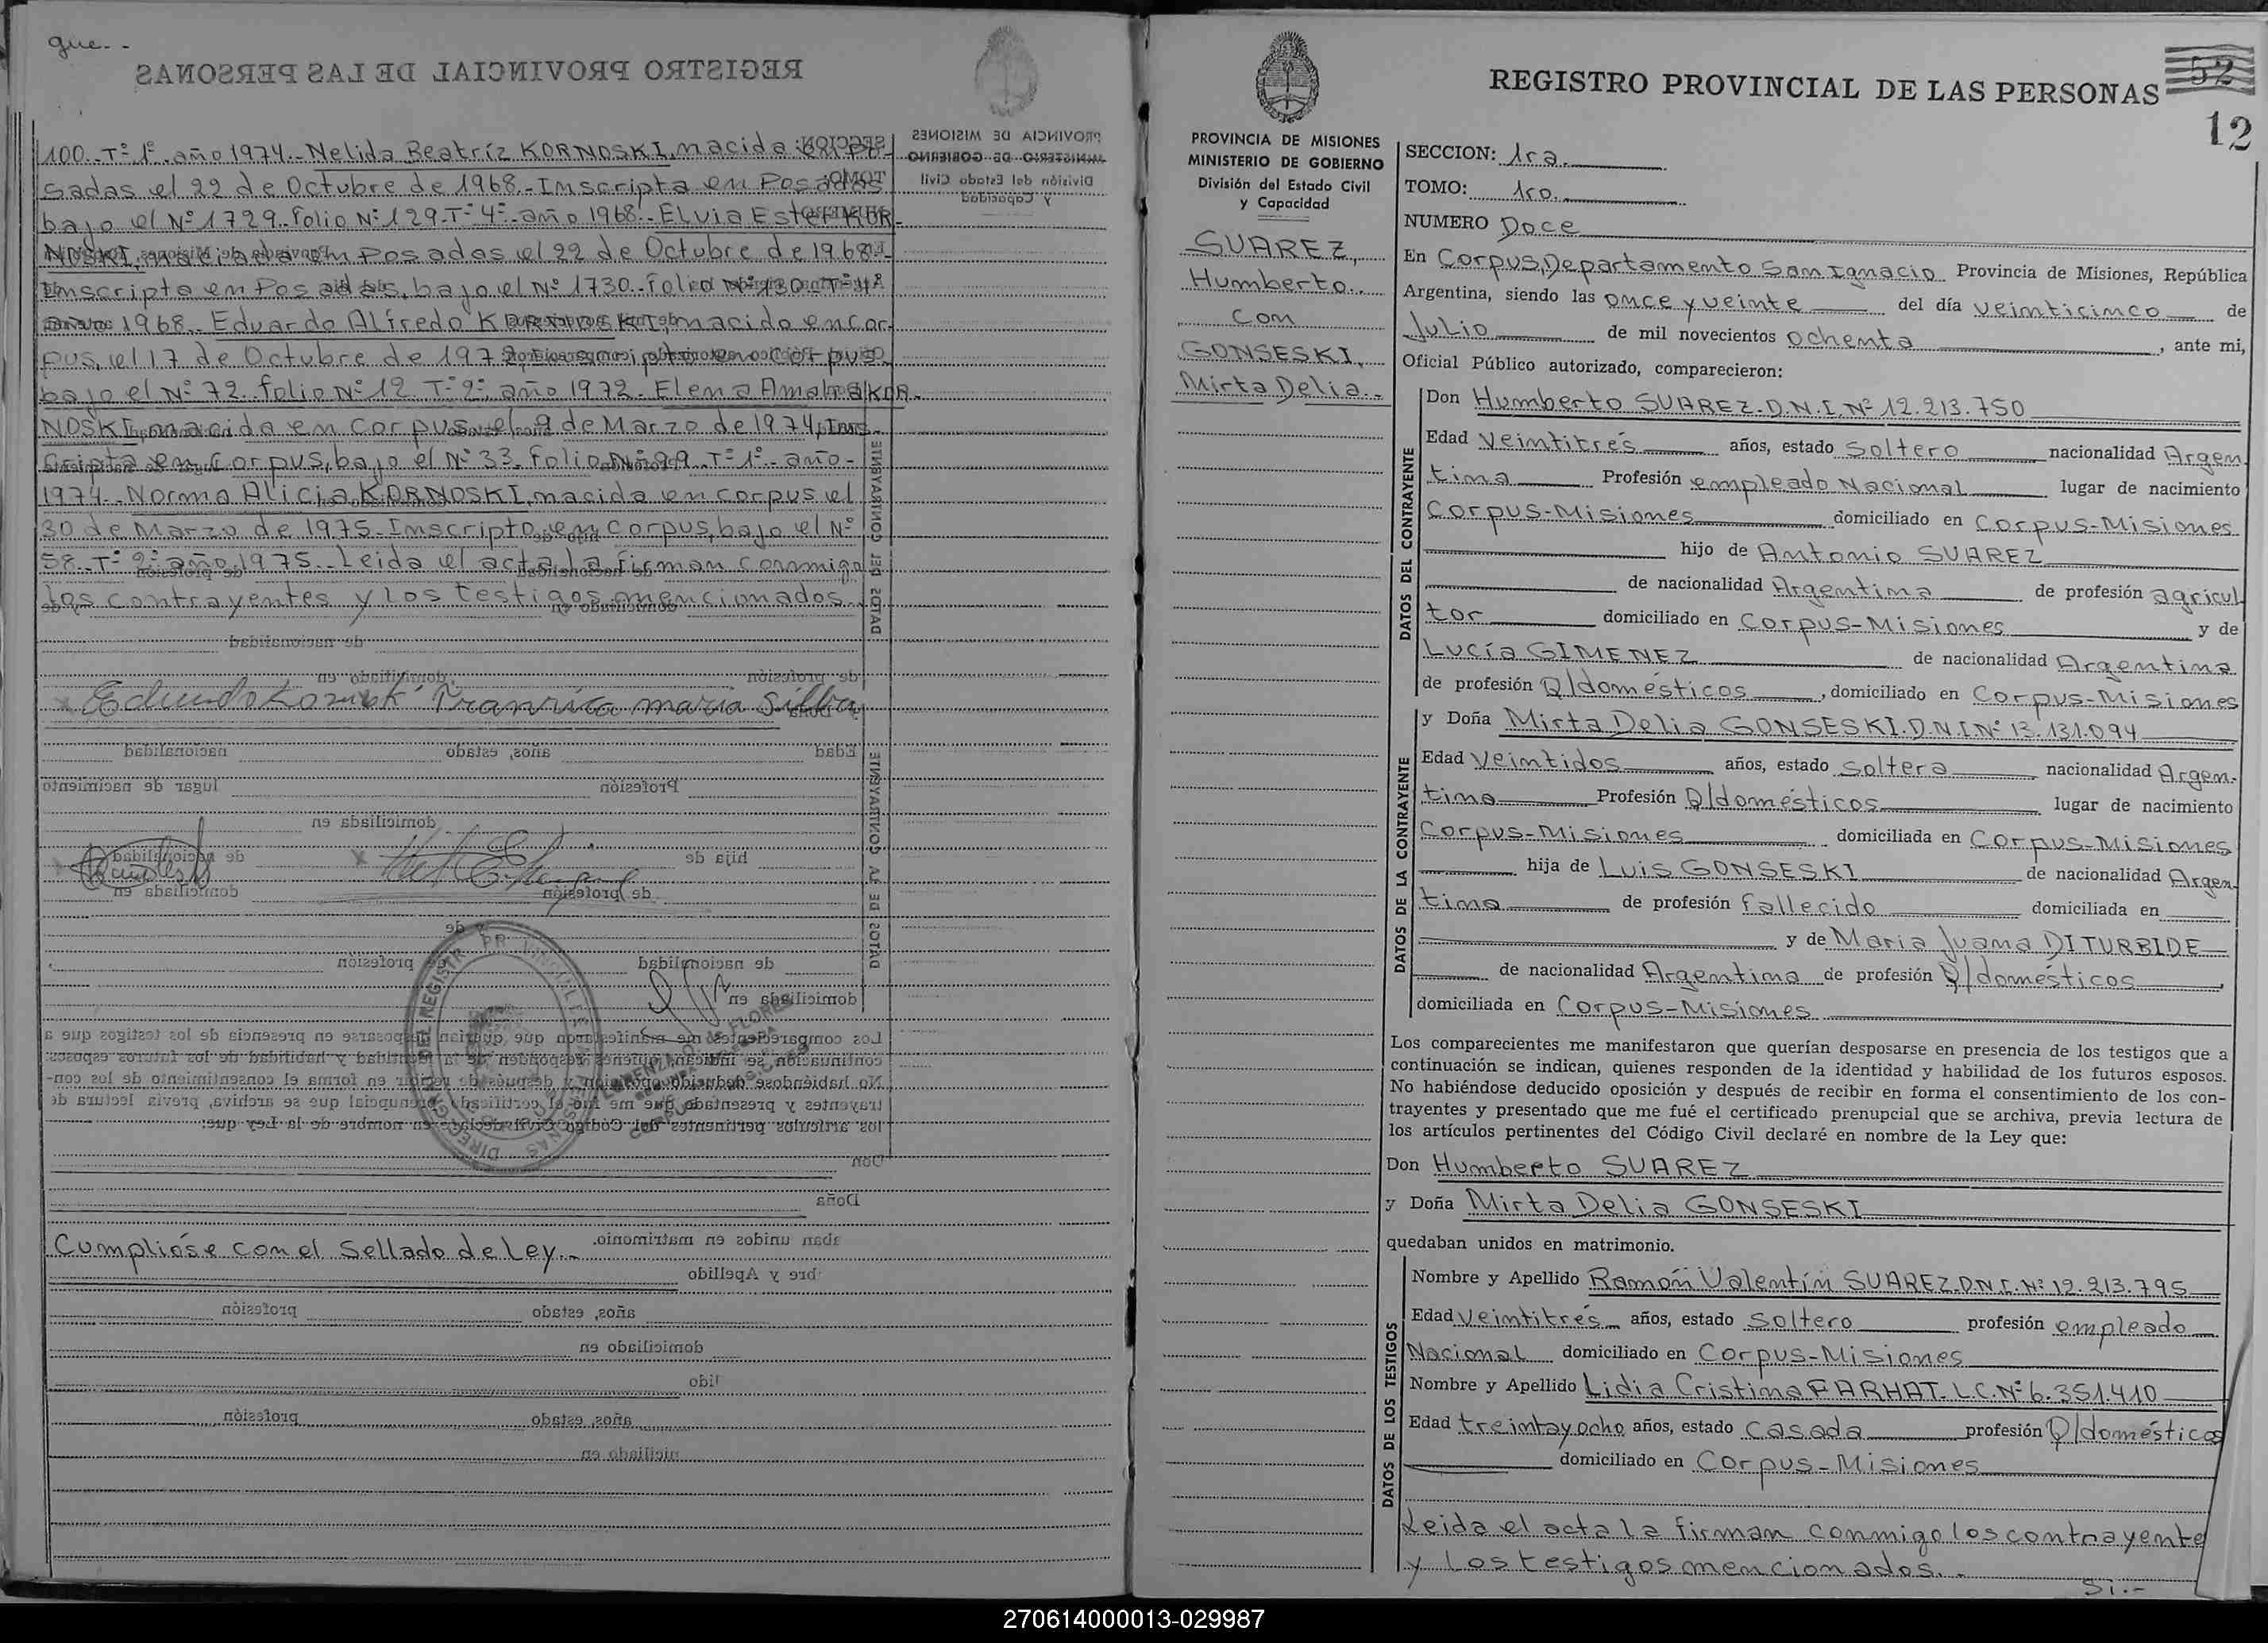 que.-
100.. T=1º. año 1974.- Nelida Beatríz KORNOSKI, nacida en Po-
sadas el 22 de Octubre de 1968.- Inscripta en Posadas
bajo el Nº 1729. folio Nº 129-T=4º- año 1968.. ELVia Ester KOR-
NOSKI, nacida en Posadas el 22 de Octubre de 1968.-
Inscripta en Posadas, bajo el Nº 1730. folio Nº 130 T=4º
año 1968.. Eduardo Alfredo KORNOSKI, nacido en Cor-
pus, el 17 de Octubre de 1972, en Corpus
bajo el Nº 72. folio Nº 12. T=2º, año 1972. Elena Amalia KOR-
NOSKI, nacida en Corpus, el 9 de Marzo de 1974, Ins-
cripta en Corpus, bajo el Nº 33. folio Nº 99. T=1º- año-
1974.. Norma Alicia KORNOSKI, nacida en Corpus el
30 de Marzo de 1975. Inscripto en Corpus, bajo el Nº
58.. T= 2º año 1975.. Leida el acta la firman conmigo
los contrayentes y los testigos mencionados.
Cumplióse con el Sellado de Ley.-
REGISTRO PROVINCIAL DE LAS PERSONAS
52
12
PROVINCIA DE MISIONES
MINISTERIO DE GOBIERNO
División del Estado Civil
y Capacidad
SUAREZ,
Humberto.
Con
GONSESKI,
Mirta Delia.-
SECCION: 1ra.
TOMO: 1ro.
NUMERO Doce
En Corpus, Departamento San Ignacio Provincia de Misiones, República
Argentina, siendo las once y veinte del día veinticinco de
Julio de mil novecientos ochenta, ante mi,
Oficial Público autorizado, comparecieron:
DATOS DEL CONTRAYENTE
Don Humberto SUAREZ. D.N.I. Nº 12.213.750
Edad Veintitrés años, estado Soltero nacionalidad Argen
tina Profesión empleado Nacional lugar de nacimiento
Corpus-Misiones domiciliado en Corpus-Misiones
hijo de Antonio SUAREZ
de nacionalidad Argentina de profesión agricul
tor domiciliado en Corpus-Misiones y de
Lucía GIMENEZ de nacionalidad Argentina
de profesión Q/domésticos, domiciliado en Corpus-Misiones
DATOS DE LA CONTRAYENTE
y Doña Mirta Delia GONSESKI. D.N.I. Nº 13.131.094
Edad Veintidos años, estado soltera nacionalidad Argen-
tina Profesión Q/domésticos lugar de nacimiento
Corpus-Misiones domiciliada en Corpus-Misiones
hija de Luis GONSESKI de nacionalidad Argen-
tina de profesión fallecido domiciliada en
y de María Juana DITURBIDE
de nacionalidad Argentina de profesión Q/domésticos,
domiciliada en Corpus-Misiones
Los comparecientes me manifestaron que querían desposarse en presencia de los testigos que a
continuación se indican, quienes responden de la identidad y habilidad de los futuros esposos.
No habiéndose deducido oposición y después de recibir en forma el consentimiento de los con-
trayentes y presentado que me fué el certificado prenupcial que se archiva, previa lectura de
los artículos pertinentes del Código Civil declaré en nombre de la Ley que:
Don Humberto SUAREZ
y Doña Mirta Delia GONSESKI
quedaban unidos en matrimonio.
DATOS DE LOS TESTIGOS
Nombre y Apellido Ramón Valentín SUAREZ. D.N.I. Nº 12.213.795
Edad Veintitrés años, estado Soltero profesión empleado
Nacional domiciliado en Corpus-Misiones
Nombre y Apellido Lidia Cristina FARHAT. L.C. Nº 6.351.410
Edad treinta y ocho años, estado Casada profesión Q/domésticos
domiciliado en Corpus-Misiones
Leida el acta la firman conmigo los contrayente
y los testigos mencionados.-
Si.-
270614000013-029987